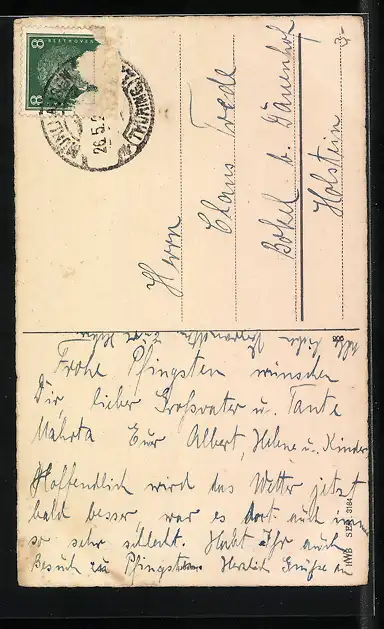 Herrn
Claus Trede
Bokel b. Dauenhof
Holstein
8
8
26.5.2
Frohe Pfingsten wünschen
Dir, lieber Großvater u. Tante
Mahrta Eure Albert, Helene u. Kinder
Hoffendlich wird das Wetter jetzt
bald besser, war es dort auch
so sehr schlecht. Habt Ihr auch
Besuch zu Pfingsten. Herzlich Grüße
HWB SER. 3184